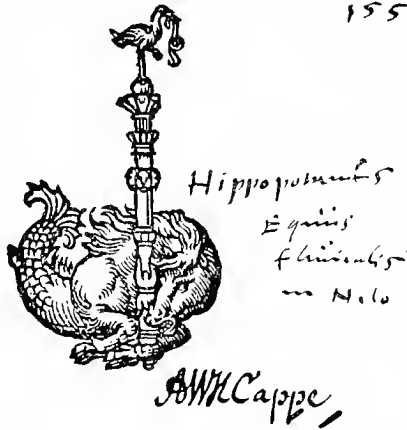 155
Hippopotamus
Equus
fluuialis
in Nilo
AWHCappe